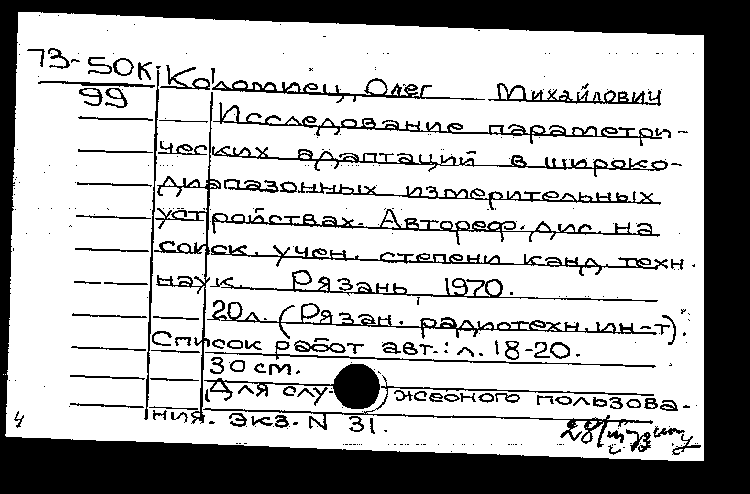 73-50К Коломиец, Олег Михайлович
99
Исследование параметри-
ческих адаптаций в широко-
диапазонных измерительных
устройствах. Автореф. дис. на
соиск. учен. степени канд. техн.
наук. Рязань, 1970.
20л. (Рязан. радиотехн. ин-т).
Список работ авт.: л. 18-20.
30 см.
Для слу- жебного пользова-
ния. Экз. N 31.